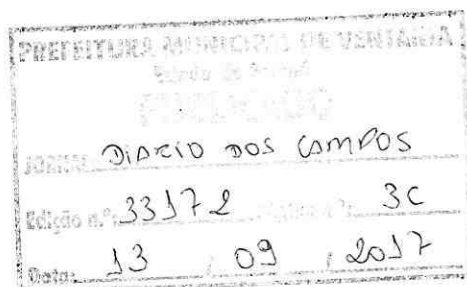 PREFEITURA MUNICIPAL DE VENTANIA
Estado do Paraná
PUBLICADO
JORNAL: DIARIO DOS CAMPOS
Edição n.º: 33172 Página n.º: 3C
Data: 13 / 09 / 2017